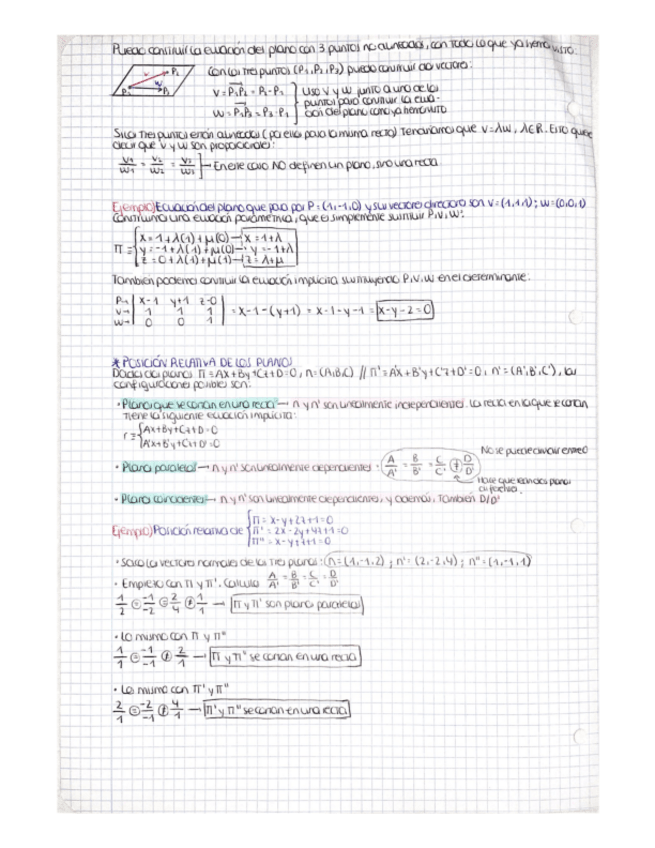 Puedo construir la ecuación del plano con 3 puntos no alineados, con todo lo que ya hemos visto:
Con los tres puntos (P₁, P₂, P₃) puedo construir dos vectores:
V = P₁P₂ = P₂ - P₁
W = P₁P₃ = P₃ - P₁
Uso V y W junto a uno de los
puntos para construir la ecua-
ción del plano como ya hemos visto
Si los tres puntos están alineados ( por ellos pasa la misma recta) Tendríamos que V = λW, λ∈R. Esto quiere
decir que V y W son proporcionales:
V₁/W₁ = V₂/W₂ = V₃/W₃ → En este caso NO definen un plano, sino una recta
Ejemplo) Ecuación del plano que pasa por P = (1,-1,0) y sus vectores directores son V = (1,1,1) ; W = (0,0,1)
Construimos una ecuación paramétrica, que es simplemente sustituir P, V, W:
Π ≡ { X = 1 + λ(1) + μ(0) → X = 1+λ
y = -1 + λ(1) + μ(0) → y = -1+λ
z = 0 + λ(1) + μ(1) → z = λ+μ
También podemos construir la ecuación implícita sustituyendo P, V, W en el determinante:
P→ | X-1 y+1 z-0 |
V→ | 1 1 1 | = X-1-(y+1) = X-1-y-1 = X-y-2=0
W→ | 0 0 1 |
* POSICIÓN RELATIVA DE LOS PLANOS
Dados dos planos Π ≡ Ax+By+Cz+D=0, n=(A,B,C) // Π' ≡ A'x+B'y+C'z+D'=0; n'=(A',B',C'), las
configuraciones posibles son:
· Planos que se cortan en una recta → n y n' son linealmente independientes. La recta en la que se cortan
tiene la siguiente ecuación implícita:
r ≡ { Ax+By+Cz+D=0
A'x+B'y+C'z+D'=0
No se puede cumplir
· Planos paralelos → n y n' son linealmente dependientes: A/A' = B/B' = C/C' ≠ D/D'
Hace que sean dos planos
· Planos coincidentes → n y n' son linealmente dependientes, y además, también D/D'
Ejemplo) Posición relativa de { Π ≡ x-y+2z+1=0
Π' ≡ 2x-2y+4z+1=0
Π'' ≡ x-y+z+1=0
· Saco los vectores normales de los tres planos: n=(1,-1,2) ; n'=(2,-2,4) ; n''=(1,-1,1)
· Empiezo con Π y Π'. Calculo A/A' = B/B' = C/C' = D/D'
1/2 = -1/-2 = 2/4 ≠ 1/1 → Π y Π' son planos paralelos
· Lo mismo con Π y Π''
1/1 = -1/-1 ≠ 2/1 → Π y Π'' se cortan en una recta
· Lo mismo con Π' y Π''
2/1 = -2/-1 ≠ 4/1 → Π' y Π'' se cortan en una recta